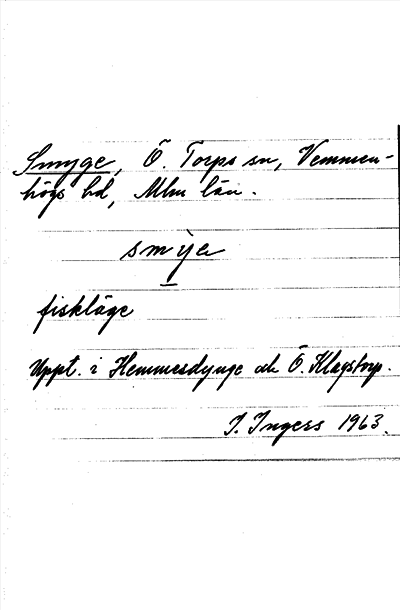 Smyge, Ö. Torps sn, Vemmen-
högs hd, Mlm län.
smỳa
fiskläge
Uppt. i Hemmesdynge och Ö. Klagstorp.
I. Ingers 1963.